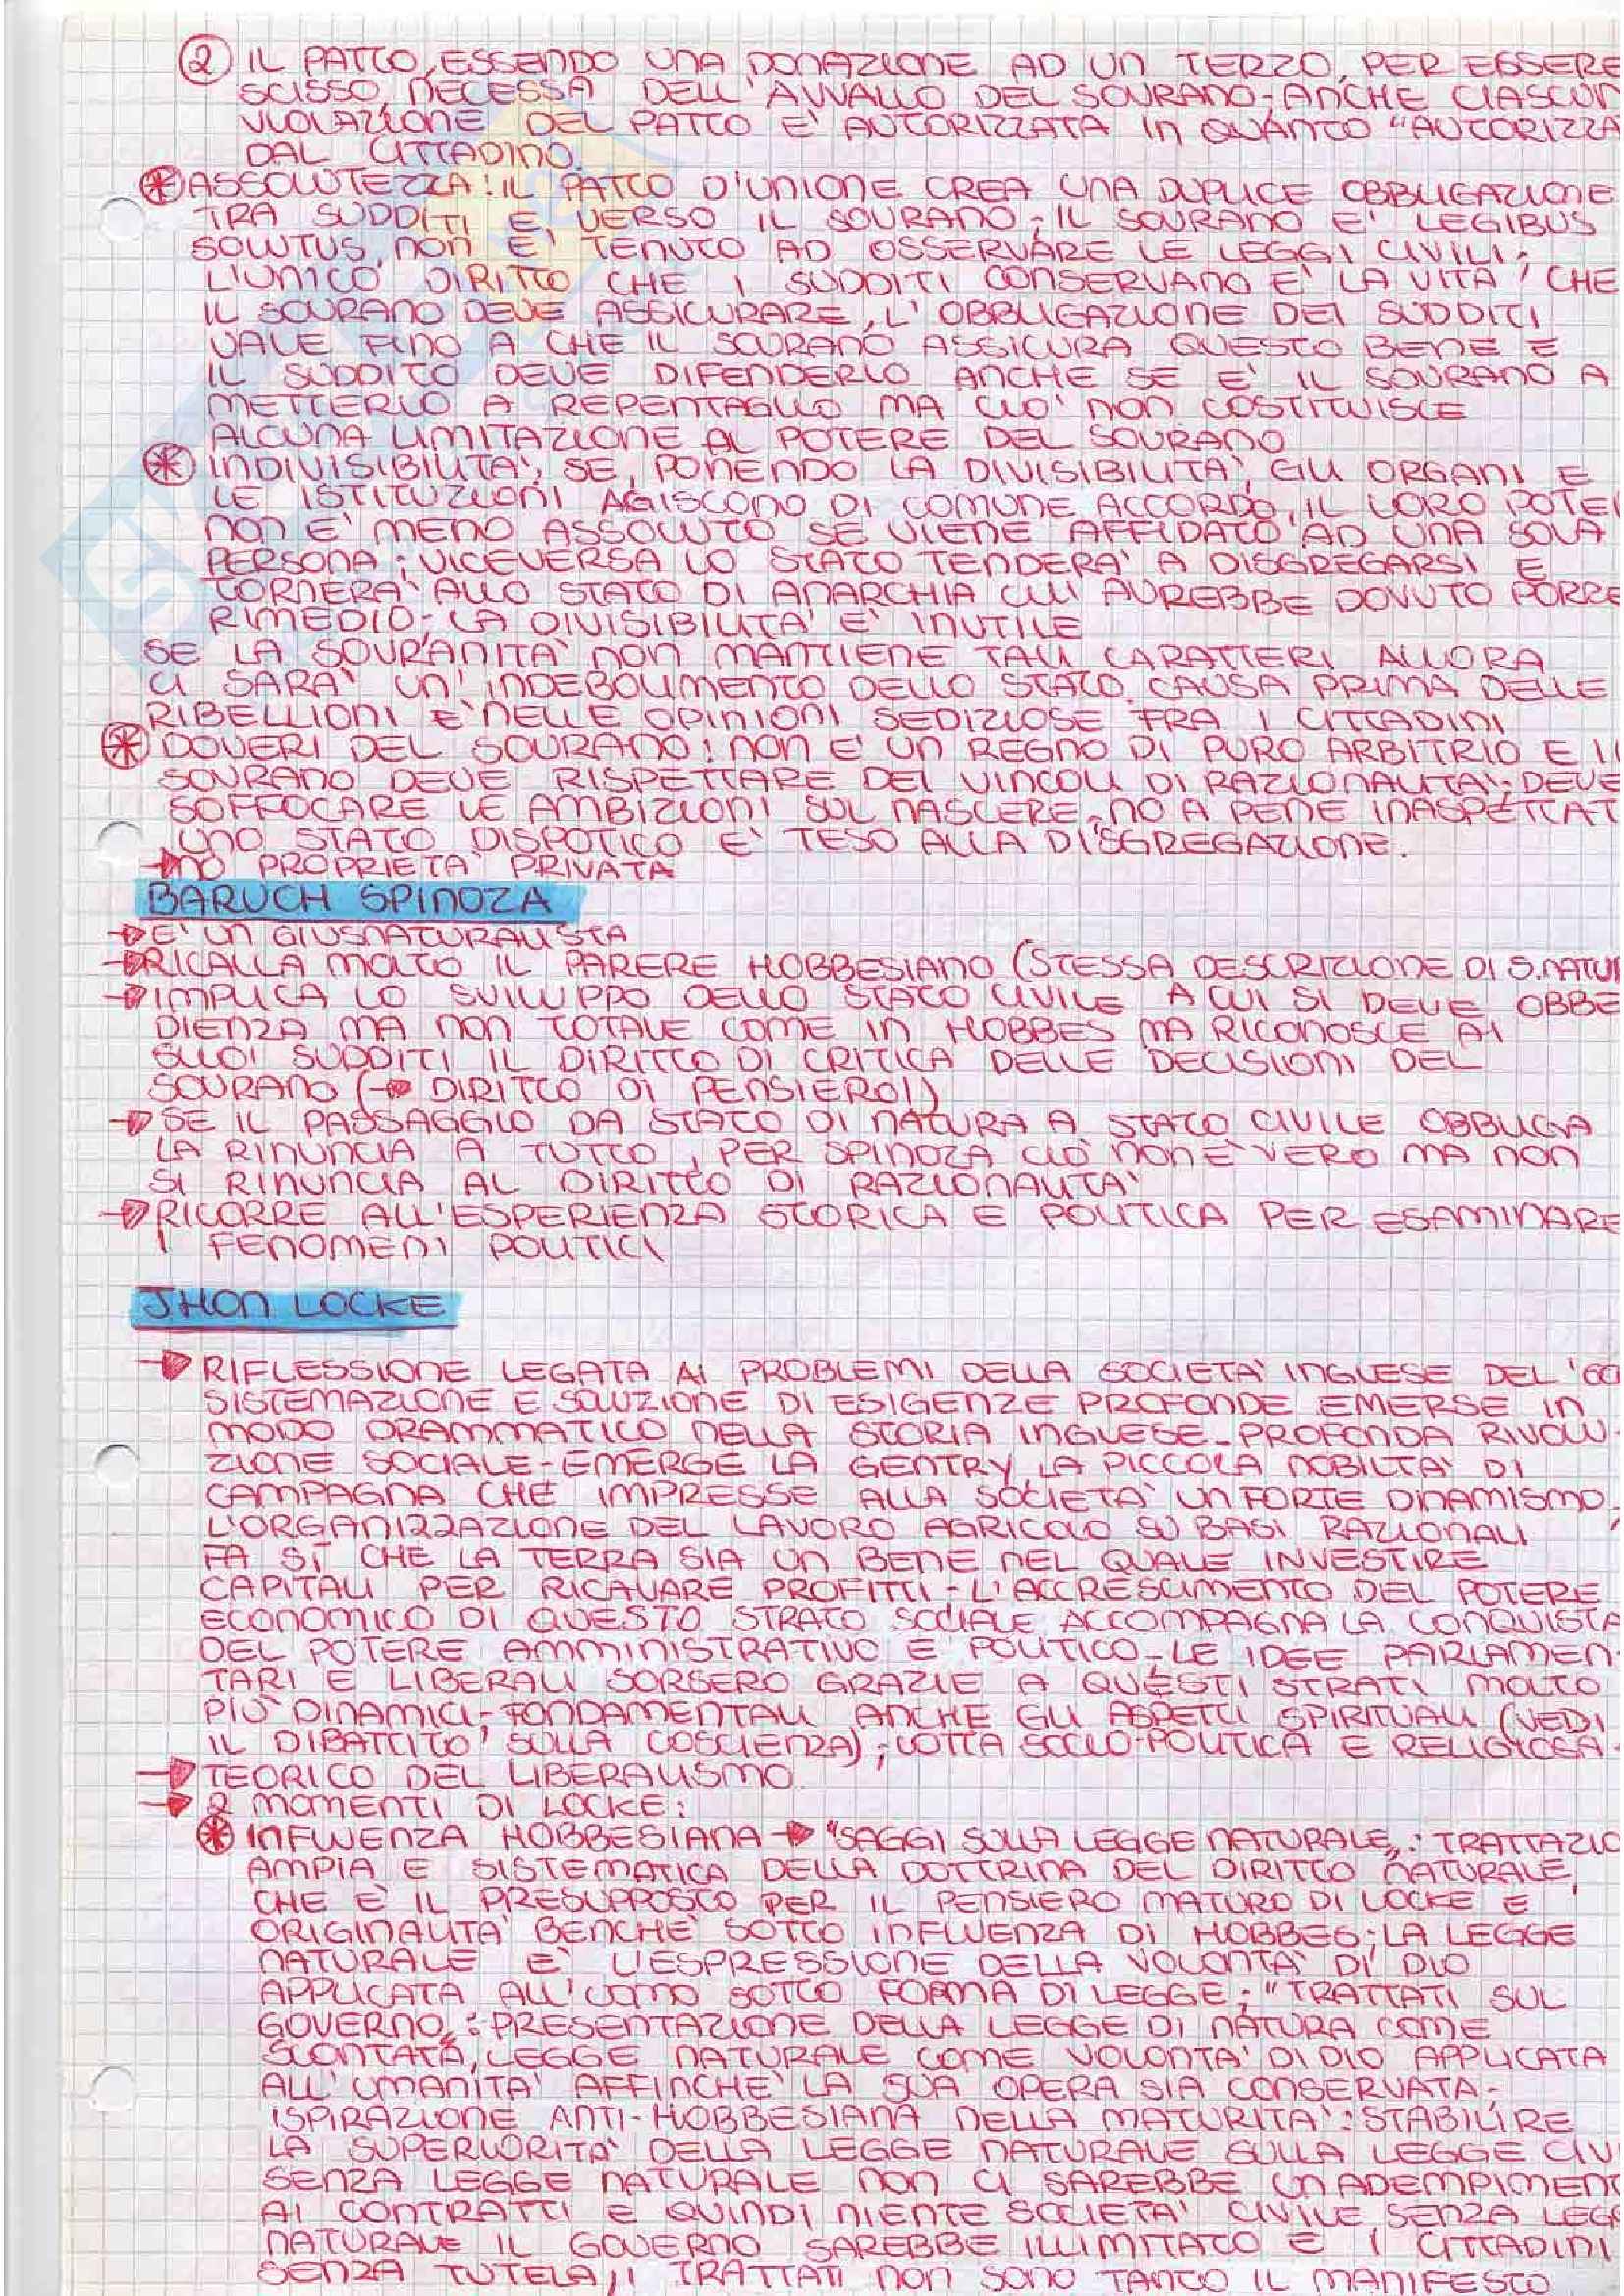 ② IL PATTO, ESSENDO UNA DONAZIONE AD UN TERZO, PER ESSERE
SCISSO, NECESSA DELL'AVVALLO DEL SOVRANO - ANCHE CIASCUN
VIOLAZIONE DEL PATTO E' AUTORIZZATA IN QUANTO "AUTORIZZA
DAL CITTADINO.
* ASSOLUTEZZA: IL PATTO D'UNIONE CREA UNA DUPLICE OBBLIGAZIONE
TRA SUDDITI E VERSO IL SOVRANO; IL SOVRANO E' LEGIBUS
SOLUTUS, NON E' TENUTO AD OSSERVARE LE LEGGI CIVILI;
L'UNICO DIRITTO CHE I SUDDITI CONSERVANO E' LA VITA, CHE
IL SOVRANO DEVE ASSICURARE, L'OBBLIGAZIONE DEI SUDDITI
VALE FINO A CHE IL SOVRANO ASSICURA QUESTO BENE E
IL SUDDITO DEVE DIFENDERLO ANCHE SE E' IL SOVRANO A
METTERLO A REPENTAGLIO MA CIO' NON COSTITUISCE
ALCUNA LIMITAZIONE AL POTERE DEL SOVRANO
* INDIVISIBILITA': SE, PONENDO LA DIVISIBILITA', GLI ORGANI E
LE ISTITUZIONI AGISCONO DI COMUNE ACCORDO, IL LORO POTE
NON E' MENO ASSOLUTO SE VIENE AFFIDATO AD UNA SOLA
PERSONA; VICEVERSA LO STATO TENDERA' A DISGREGARSI E
TORNERA' ALLO STATO DI ANARCHIA CUI AVREBBE DOVUTO PORRE
RIMEDIO; LA DIVISIBILITA' E' INUTILE
SE LA SOVRANITA' NON MANTIENE TALI CARATTERI ALLORA
CI SARA' UN'INDEBOLIMENTO DELLO STATO, CAUSA PRIMA DELLE
RIBELLIONI E' NELLE OPINIONI SEDIZIOSE FRA I CITTADINI
* DOVERI DEL SOVRANO: NON E' UN REGNO DI PURO ARBITRIO E IL
SOVRANO DEVE RISPETTARE DEI VINCOLI DI RAZIONALITA'; DEVE
SOFFOCARE LE AMBIZIONI SUL NASCERE, NO A PENE INASPETTAT
UNO STATO DISPOTICO E' TESO ALLA DISGREGAZIONE.
→ NO PROPRIETA' PRIVATA
BARUCH SPINOZA
→ E' UN GIUSNATURALISTA
→ RICALLA MOLTO IL PARERE HOBBESIANO (STESSA DESCRIZIONE DI S. NATU
→ IMPLICA LO SVILUPPO DELLO STATO CIVILE A CUI SI DEVE OBBE
DIENZA MA NON TOTALE COME IN HOBBES MA RICONOSCE AI
SUOI SUDDITI IL DIRITTO DI CRITICA DELLE DECISIONI DEL
SOVRANO (→ DIRITTO DI PENSIERO!)
→ SE IL PASSAGGIO DA STATO DI NATURA A STATO CIVILE OBBLIGA
LA RINUNCIA A TUTTO, PER SPINOZA CIO' NON E' VERO MA NON
SI RINUNCIA AL DIRITTO DI RAZIONALITA'
→ RICORRE ALL'ESPERIENZA STORICA E POLITICA PER ESAMINARE
I FENOMENI POLITICI
JHON LOCKE
→ RIFLESSIONE LEGATA AI PROBLEMI DELLA SOCIETA' INGLESE DEL '60
SISTEMAZIONE E SOLUZIONE DI ESIGENZE PROFONDE EMERSE IN
MODO DRAMMATICO NELLA STORIA INGLESE - PROFONDA RIVOLU-
ZIONE SOCIALE - EMERGE LA GENTRY, LA PICCOLA NOBILTA' DI
CAMPAGNA CHE IMPRESSE ALLA SOCIETA' UN FORTE DINAMISMO,
L'ORGANIZZAZIONE DEL LAVORO AGRICOLO SU BASI RAZIONALI
FA SI' CHE LA TERRA SIA UN BENE NEL QUALE INVESTIRE
CAPITALI PER RICAVARE PROFITTI - L'ACCRESCIMENTO DEL POTERE
ECONOMICO DI QUESTO STRATO SOCIALE ACCOMPAGNA LA CONQUISTA
DEL POTERE AMMINISTRATIVO E POLITICO - LE IDEE PARLAMEN-
TARI E LIBERALI SORSERO GRAZIE A QUESTI STRATI MOLTO
PIU' DINAMICI - FONDAMENTALI ANCHE GLI ASPETTI SPIRITUALI (VEDI
IL DIBATTITO SULLA COSCIENZA); LOTTA SOCIO-POLITICA E RELIGIOSA.
→ TEORICO DEL LIBERALISMO
→ 2 MOMENTI DI LOCKE:
* INFLUENZA HOBBESIANA → "SAGGI SULLA LEGGE NATURALE": TRATTAZIO
AMPIA E SISTEMATICA DELLA DOTTRINA DEL DIRITTO NATURALE,
CHE E' IL PRESUPPOSTO PER IL PENSIERO MATURO DI LOCKE E
ORIGINALITA' BENCHE' SOTTO INFLUENZA DI HOBBES; LA LEGGE
NATURALE E' L'ESPRESSIONE DELLA VOLONTA' DI DIO
APPLICATA ALL'UOMO SOTTO FORMA DI LEGGE; "TRATTATI SUL
GOVERNO": PRESENTAZIONE DELLA LEGGE DI NATURA COME
SCONTATA, LEGGE NATURALE COME VOLONTA' DI DIO APPLICATA
ALL'UMANITA' AFFINCHE' LA SUA OPERA SIA CONSERVATA -
ISPIRAZIONE ANTI-HOBBESIANA NELLA MATURITA': STABILIRE
LA SUPERIORITA' DELLA LEGGE NATURALE SULLA LEGGE CIV
SENZA LEGGE NATURALE NON CI SAREBBE UN ADEMPIMEN
AI CONTRATTI E QUINDI NIENTE SOCIETA' CIVILE SENZA LEG
NATURALE IL GOVERNO SAREBBE ILLIMITATO E I CITTADINI
SENZA TUTELA, I TRATTATI NON SONO TANTO IL MANIFESTO